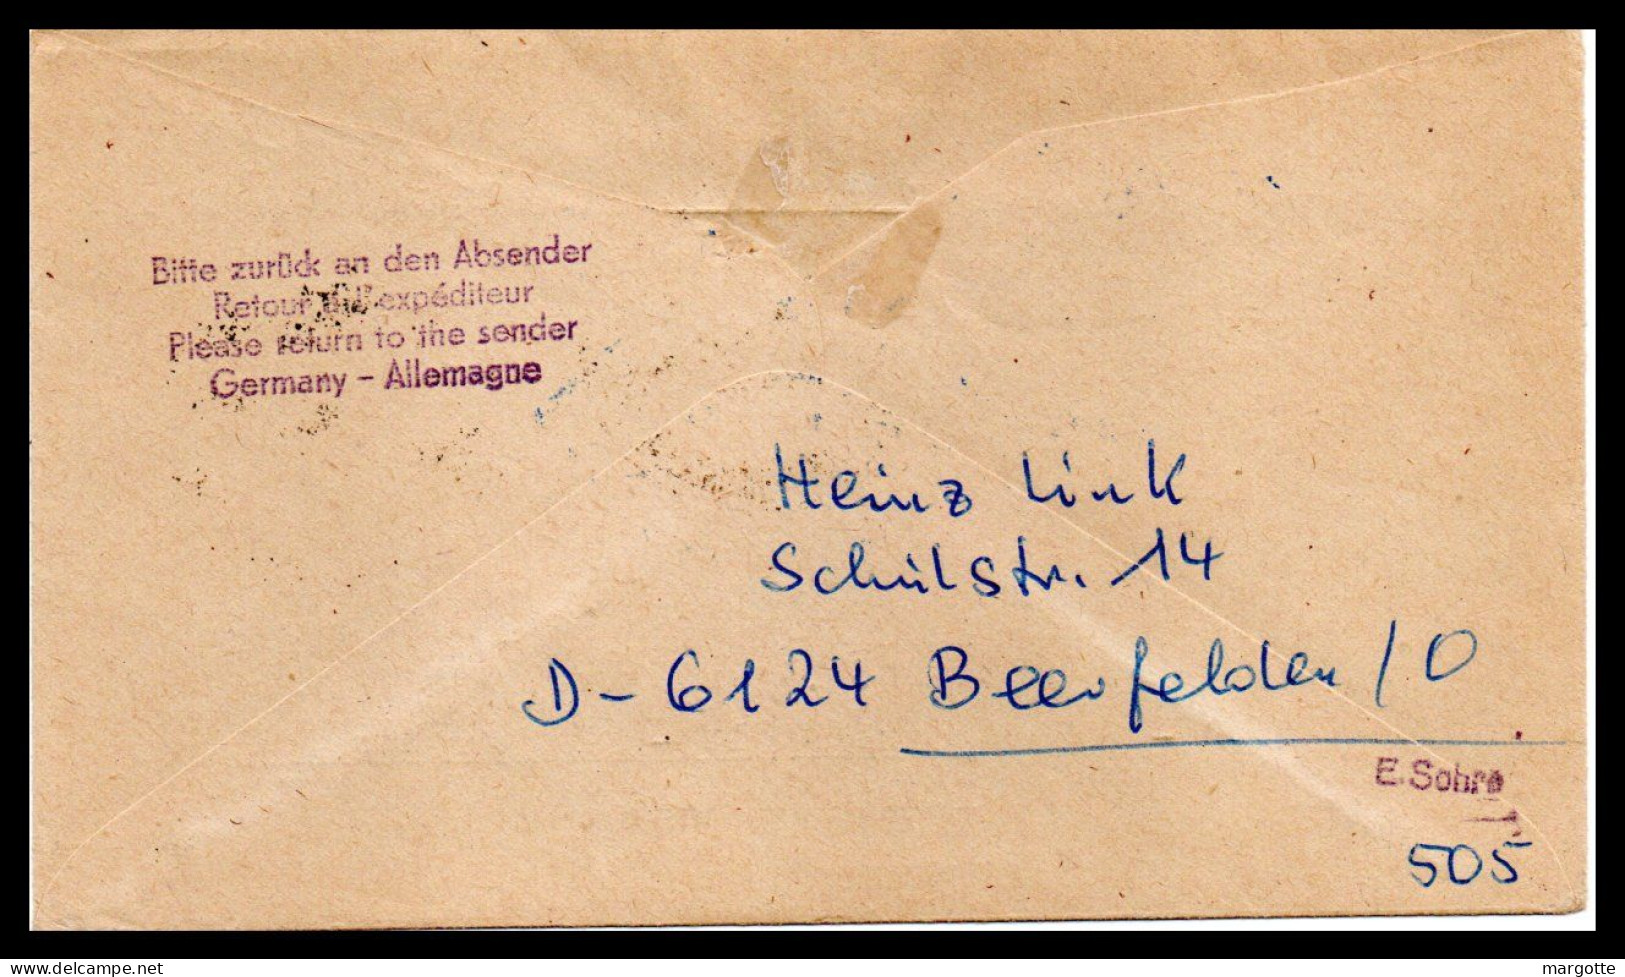 Bitte zurück an den Absender
Retour à l'expéditeur
Please return to the sender
Germany - Allemagne
Heinz Link
Schulstr. 14
D-6124 Beerfelden / O
E. Sohre
505
margotte